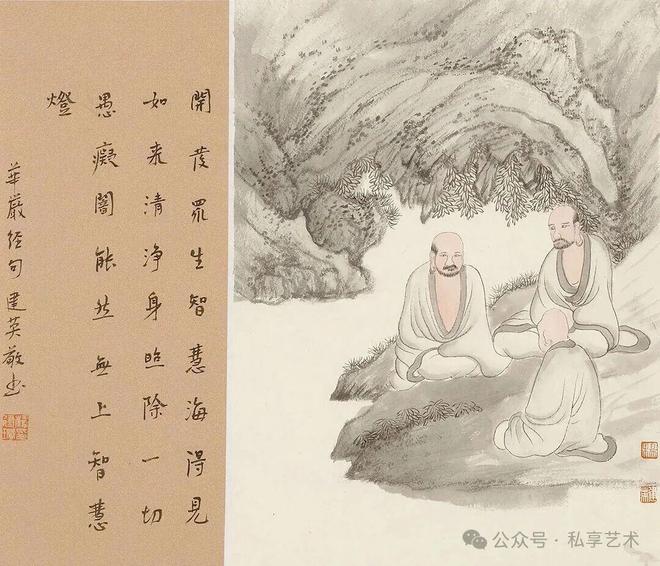 開發眾生智慧海得見
如来清淨身照除一切
愚癡闇能然無上智慧
燈
華嚴經句 建英敬書
公众号 · 私享艺术